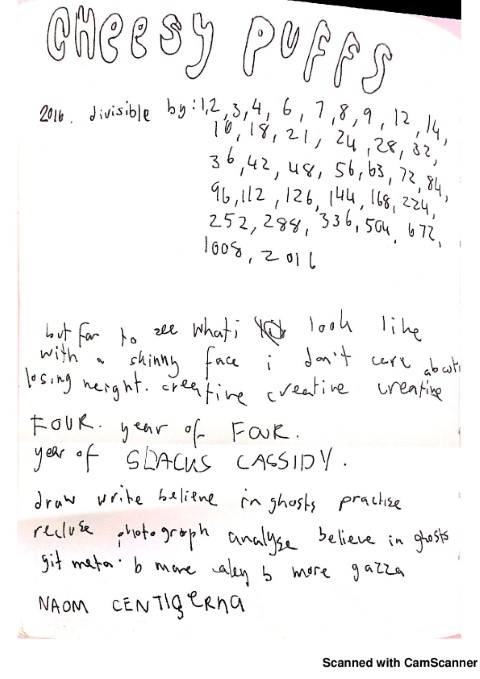 CHEESY PUFFS
2016. divisible by: 1, 2, 3, 4, 6, 7, 8, 9, 12, 14,
16, 18, 21, 24, 28, 32,
36, 42, 48, 56, 63, 72, 84,
96, 112, 126, 144, 168, 224,
252, 288, 336, 504, 672,
1008, 2016
but far to see what i look like
with a skinny face i don't care about
losing weight. creative creative creative
FOUR. year of FOUR.
year of CASSIDY.
draw write believe in ghosts practise
reduse photograph analyse believe in ghosts
git meta. b more b more gazza
NAOM
Scanned with CamScanner